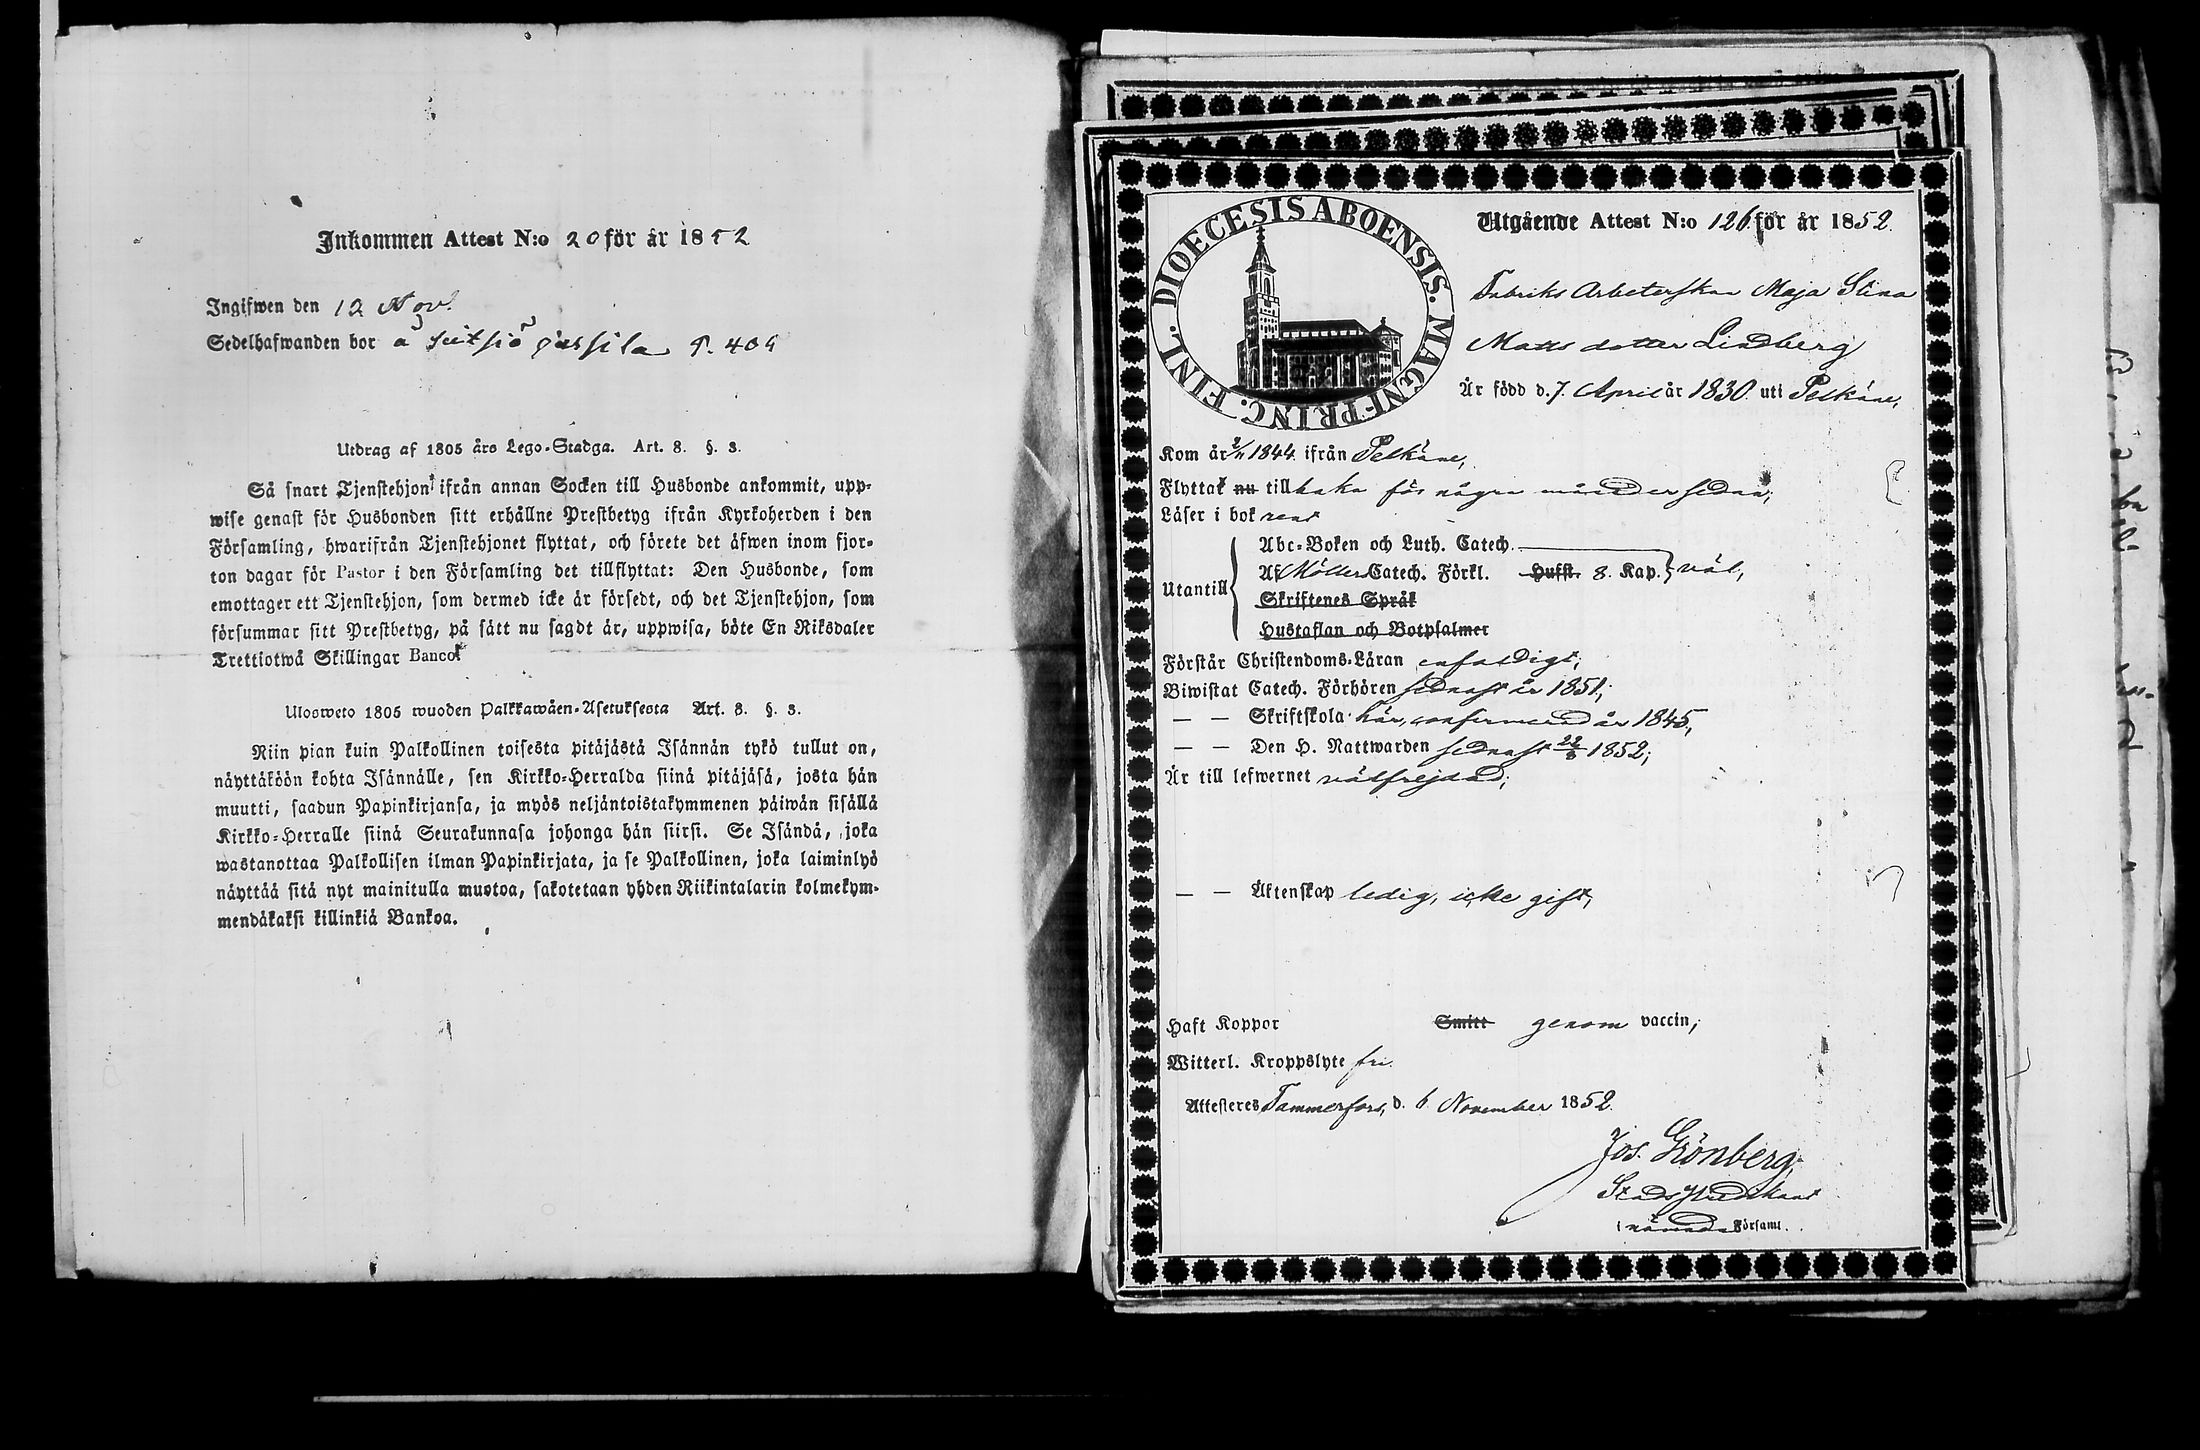 Inkommen Attest N:o 20 för år 1852
Ingifwen den 12 Nov.
Sedelhafwanden bor å
Utdrag af 1805 års Lego-Stadga. Art. 8. §. 3.
Så snart Tjenstehjon ifrån annan Socken till Husbonde ankommit, upp-
wise genast för Husbonden sitt erhållne Prestbetyg ifrån Kyrkoherden i den
Församling, hwarifrån Tjenstehjonet flyttat, och förete det äfwen inom fjor-
ton dagar för Pastor i den Församling det tillflyttat: Den Husbonde, som
emottager ett Tjenstehjon, som dermed icke är försedt, och det Tjenstehjon, som
försummar sitt Prestbetyg, på sätt nu sagdt är, uppwisa, böte En Riksdaler
Trettiotwå Skillingar Banco.
Ulosweto 1805 wuoden Palkkawäen-Asetuksesta Art. 8. §. 3.
Niin pian kuin Palkollinen toisesta pitäjästä Isännän tykö tullut on,
näyttäköön kohta Isännälle, sen Kirkko-Herralda siinä pitäjäsä, josta hän
muutti, saadun Papinkirjansa, ja myös neljäntoistakymmenen päiwän sisällä
Kirkko-Herralle siinä Seurakunnasa johonga hän siirsi. Se Isändä, joka
wastanottaa Palkollisen ilman Papinkirjata, ja se Palkollinen, joka laiminlyö
näyttää sitä nyt mainitulla muotoa, sakotetaan yhden Riikintalarin kolmekym-
mendäkaksi killinkiä Bankoa.
DIOECESIS ABOENSIS. MAGNI PRINC. FINL.
Utgående Attest N:o 126 för år 1852.
Fabriks Arbeterskan Maja Stina
Matts dotter Lindberg
Är född d. 7. April år 1830. uti Pelkäne,
Kom år 2/11 1844. ifrån Pelkäne,
Flyttat nu tillbaka för några månader sedan;
Läser i bok rent
Utantill
Abc-Boken och Luth. Catech.
Af Möllers Catech. Förkl. Hufst. 8. Kap. väl,
Skriftenes Språk
Hustaflan och Botpsalmer
Förstår Christendoms-Läran enfaldigt;
Biwistat Catech. Förhören sednast år 1851;
— — Skriftskola här, confirmerad år 1845,
— — Den H. Nattwarden sednast 22/8 1852;
Är till lefwernet välfrejdad;
— — Äktenskap ledig, icke gift,
Haft Koppor Smitt genom vaccin,
Witterl. Kroppslyte fri.
Attesteres Tammerfors, d. 6 November 1852.
Jos. Grönberg,
Stads Predikant
i nämnda Församl.